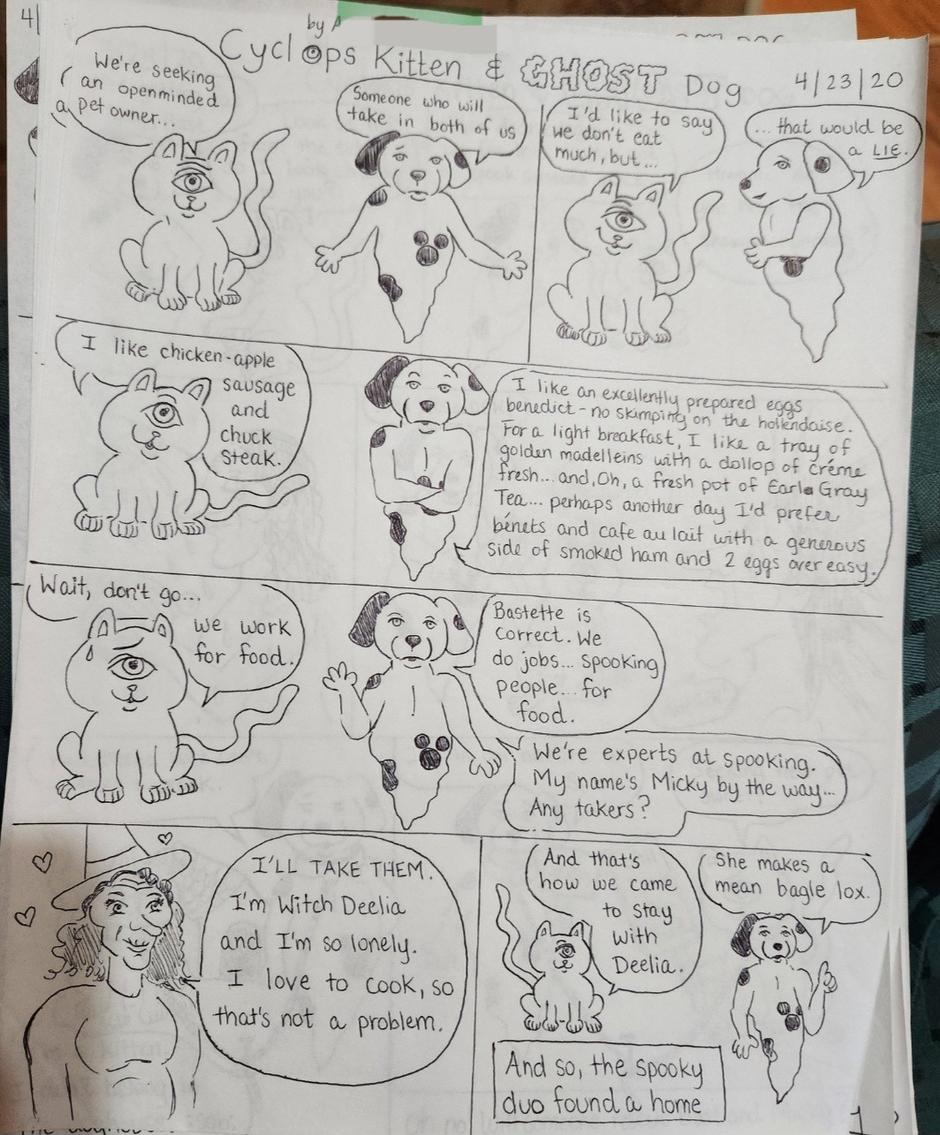 4
by A
Cyclops Kitten & GHOST Dog
4/23/20
We're seeking
an openminded
a pet owner...
Someone who will
take in both of us
I'd like to say
we don't eat
much, but...
... that would be
a LIE.
I like chicken-apple
sausage
and
chuck
steak.
I like an excellently prepared eggs
benedict - no skimping on the hollendaise.
For a light breakfast, I like a tray of
golden madelleins with a dollop of créme
fresh... and, Oh, a fresh pot of Earla Gray
Tea... perhaps another day I'd prefer
bénets and cafe au lait with a generous
side of smoked ham and 2 eggs over easy.
Wait, don't go...
we work
for food.
Bastette is
correct. We
do jobs... Spooking
people... for
food.
We're experts at spooking.
My name's Micky by the way...
Any takers?
I'LL TAKE THEM.
I'm Witch Deelia
and I'm so lonely.
I love to cook, so
that's not a problem.
And that's
how we came
to stay
with
Deelia.
She makes a
mean bagle lox.
And so, the spooky
duo found a home
1